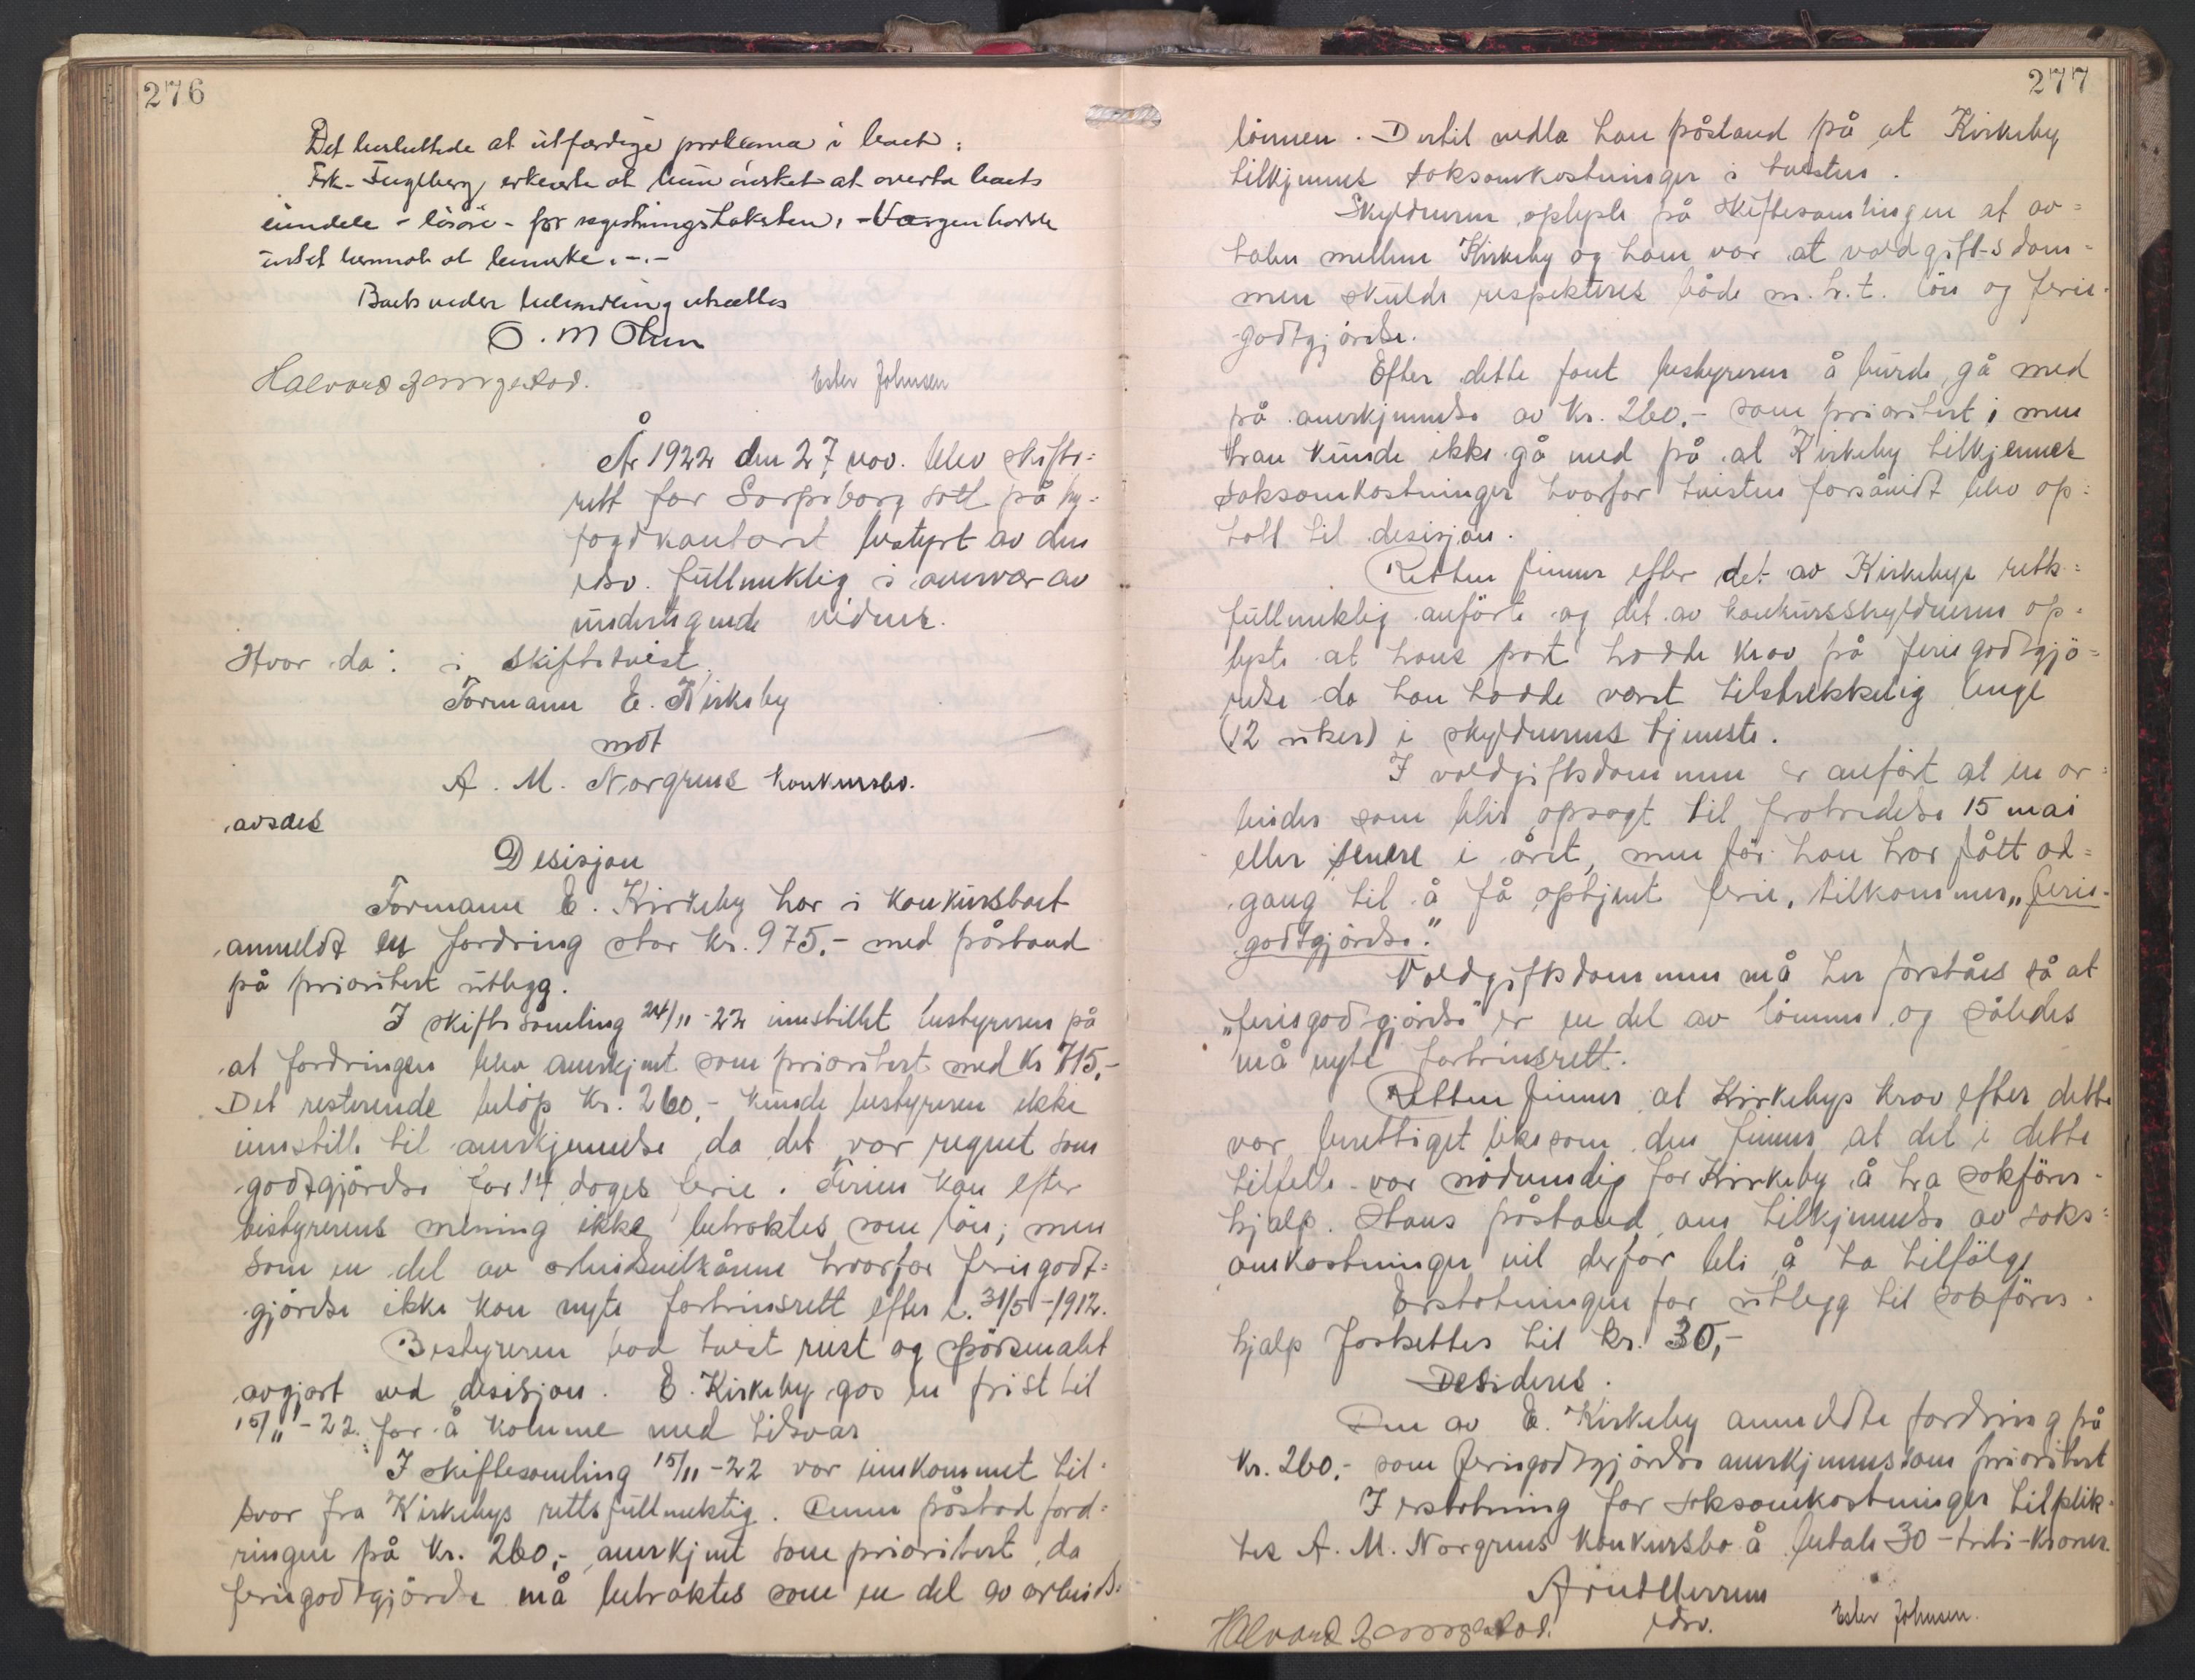 276
Det besluttede at utfærdige proklama i boet:
Frk. Fuglberg erkærte at hun ønsket at overta boets
eiendele - løsøre - for registreringstaksten. - Vergen hadde
intet hermot at bemerke. -.-
Boets videre behandling utsættes
O. M Olsen
Halvard Ester Johnsen
År 1922 den 27 nov. blev skifte=
rett for Sarpsborg satt på by=
fogdkontoret bestyrt av den
edsv. fullmektig i overvær av
undertegnede vidner.
Hvor da: i skiftetvist
Formann E. Kirkeby
mot
A. M. Norgrens konkursbo.
avsaes
Desisjon
Formann E. Kirkeby har i konkursboet
anmeldt en fordring stor kr. 975.- med påstand
på prioritert utlegg.
I skiftesamling 24/11-22 innstillet bestyreren på
at fordringen blev anerkjent som prioritert med kr 715,-
Det resterende beløp kr. 260,- kunde bestyreren ikke
innstille til anerkjennelse da det var regnet som
godtgjørelse for 14 dages ferie. Ferien kan efter
bestyrerens mening ikke betraktes som løn; men
som en del av arbeidsvilkårene hvorfor feriegodt=
gjørelse ikke kan nyte fortrinsrett efter l. 31/5-1912.
Bestyreren bad tvist reist og spørsmålet
avgjort ved desisjon. E. Kirkeby gas en frist til
15/11-22. for å komme med tilsvar
I skiftesamling 15/11-22 var innkommet til-
svar fra Kirkebys rettsfullmektig. Denne påstod ford=
ringen på kr. 260,- anerkjent som prioritert, da
feriegodtgjørelse må betraktes som en del av arbeids-
277
lønnen. Dertil nedla han påstand på at Kirkeby
tilkjennes saksomkostninger i tvisten.
Skyldneren oplyste på skiftesamlingen at av=
talen mellem Kirkeby og ham var at voldgifts dom=
men skulde respekteres både m. h. t. løn og ferie-
godtgjørelse.
Efter dette fant bestyreren å burde gå med
på anerkjennelse av kr. 260,- som prioritert; men
han kunde ikke gå med på at Kirkeby tilkjennes
saksomkostninger hvorfor tvisten forsåvidt blev op=
tatt til desisjon.
Retten finner efter det av Kirkebys retts=
fullmektig anførte og det av konkursskyldneren op=
lyste at hans part hadde krav på feriegodtgjø=
relse da han hadde været tilstrekkelig lenge
(12 uker) i skyldnerens tjeneste.
I voldgiftsdommen er anført at en ar=
beider som blir opsagt til fratredelse 15 mai
eller senere i året, men før han har fått ad=
gang til å få optjent ferie, tilkommer „ferie-
godtgjørelse."
Voldgiftsdommen må her forståes så at
„feriegodtgjørelse" er en del av lønnen og således
må nyte fortrinsrett.
Retten finner at Kirkebys krav efter dette
var berettiget likesom den finner at det i dette
tilfelle var nødvendig for Kirkeby å ha sakfører-
hjelp. Hans påstand om tilkjennelse av saks=
omkostninger vil derfor bli å ta tilfølge
Erstatningen for utlegg til sakfører-
hjelp fastsettes til kr. 30,-
Desideres.
Den av E. Kirkeby anmeldte fordring på
kr. 260,- som feriegodtgjørelse anerkjennes som prioritert
I erstatning for saksomkostninger tilplik-
tes A. M. Norgrens konkursbo å betale 30 - treti - kroner.
edsv.
Halvard Ester Johnsen.